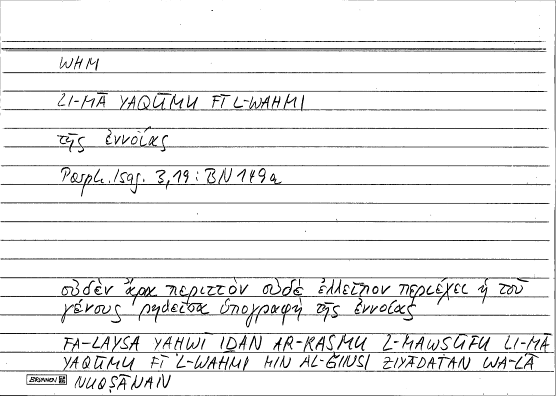 WHM
LI-MĀ YAQŪMU FĪ L-WAHMI
τῆς ἐννοίας
Porph. Isag. 3,19 : BN 149a
οὐδὲν ἄρα περιττὸν οὐδὲ ἐλλεῖπον περιέχει ἡ τοῦ
γένους ῥηθεῖσα ὑπογραφὴ τῆς ἐννοίας
FA-LAYSA YAHWĪ IḎAN AR-RASMU L-MAWṢŪFU LI-MĀ
YAQŪMU FĪ L-WAHMI MIN AL-ǦINSI ZIYĀDATAN WA-LĀ
NUQṢĀNAN